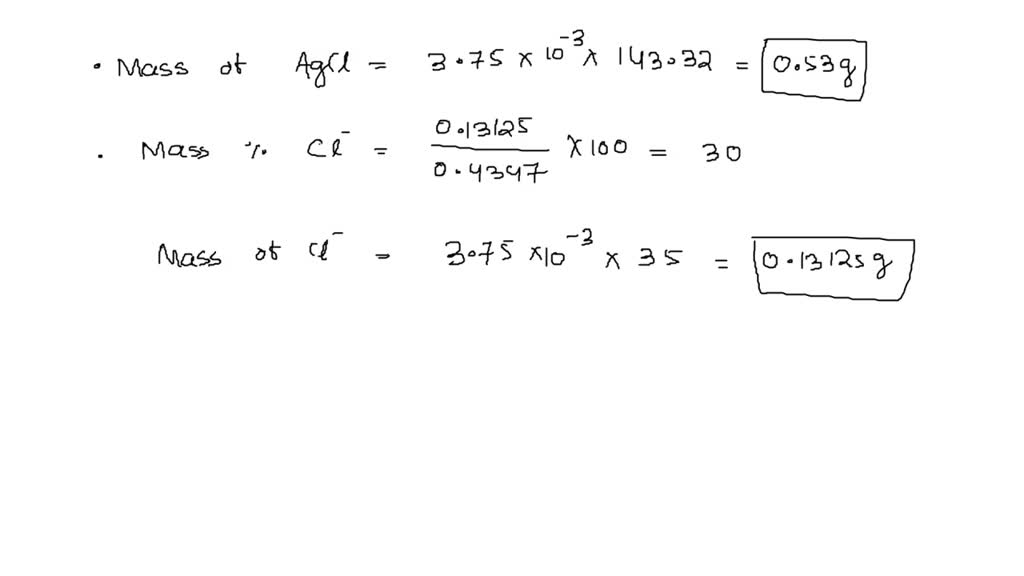 • Mass of AgCl = 3.75 × 10⁻³ × 143.32 = 0.53g
• Mass % Cl⁻ = 0.13125 / 0.4347 × 100 = 30
Mass of Cl⁻ = 3.75 × 10⁻³ × 35 = 0.13125g